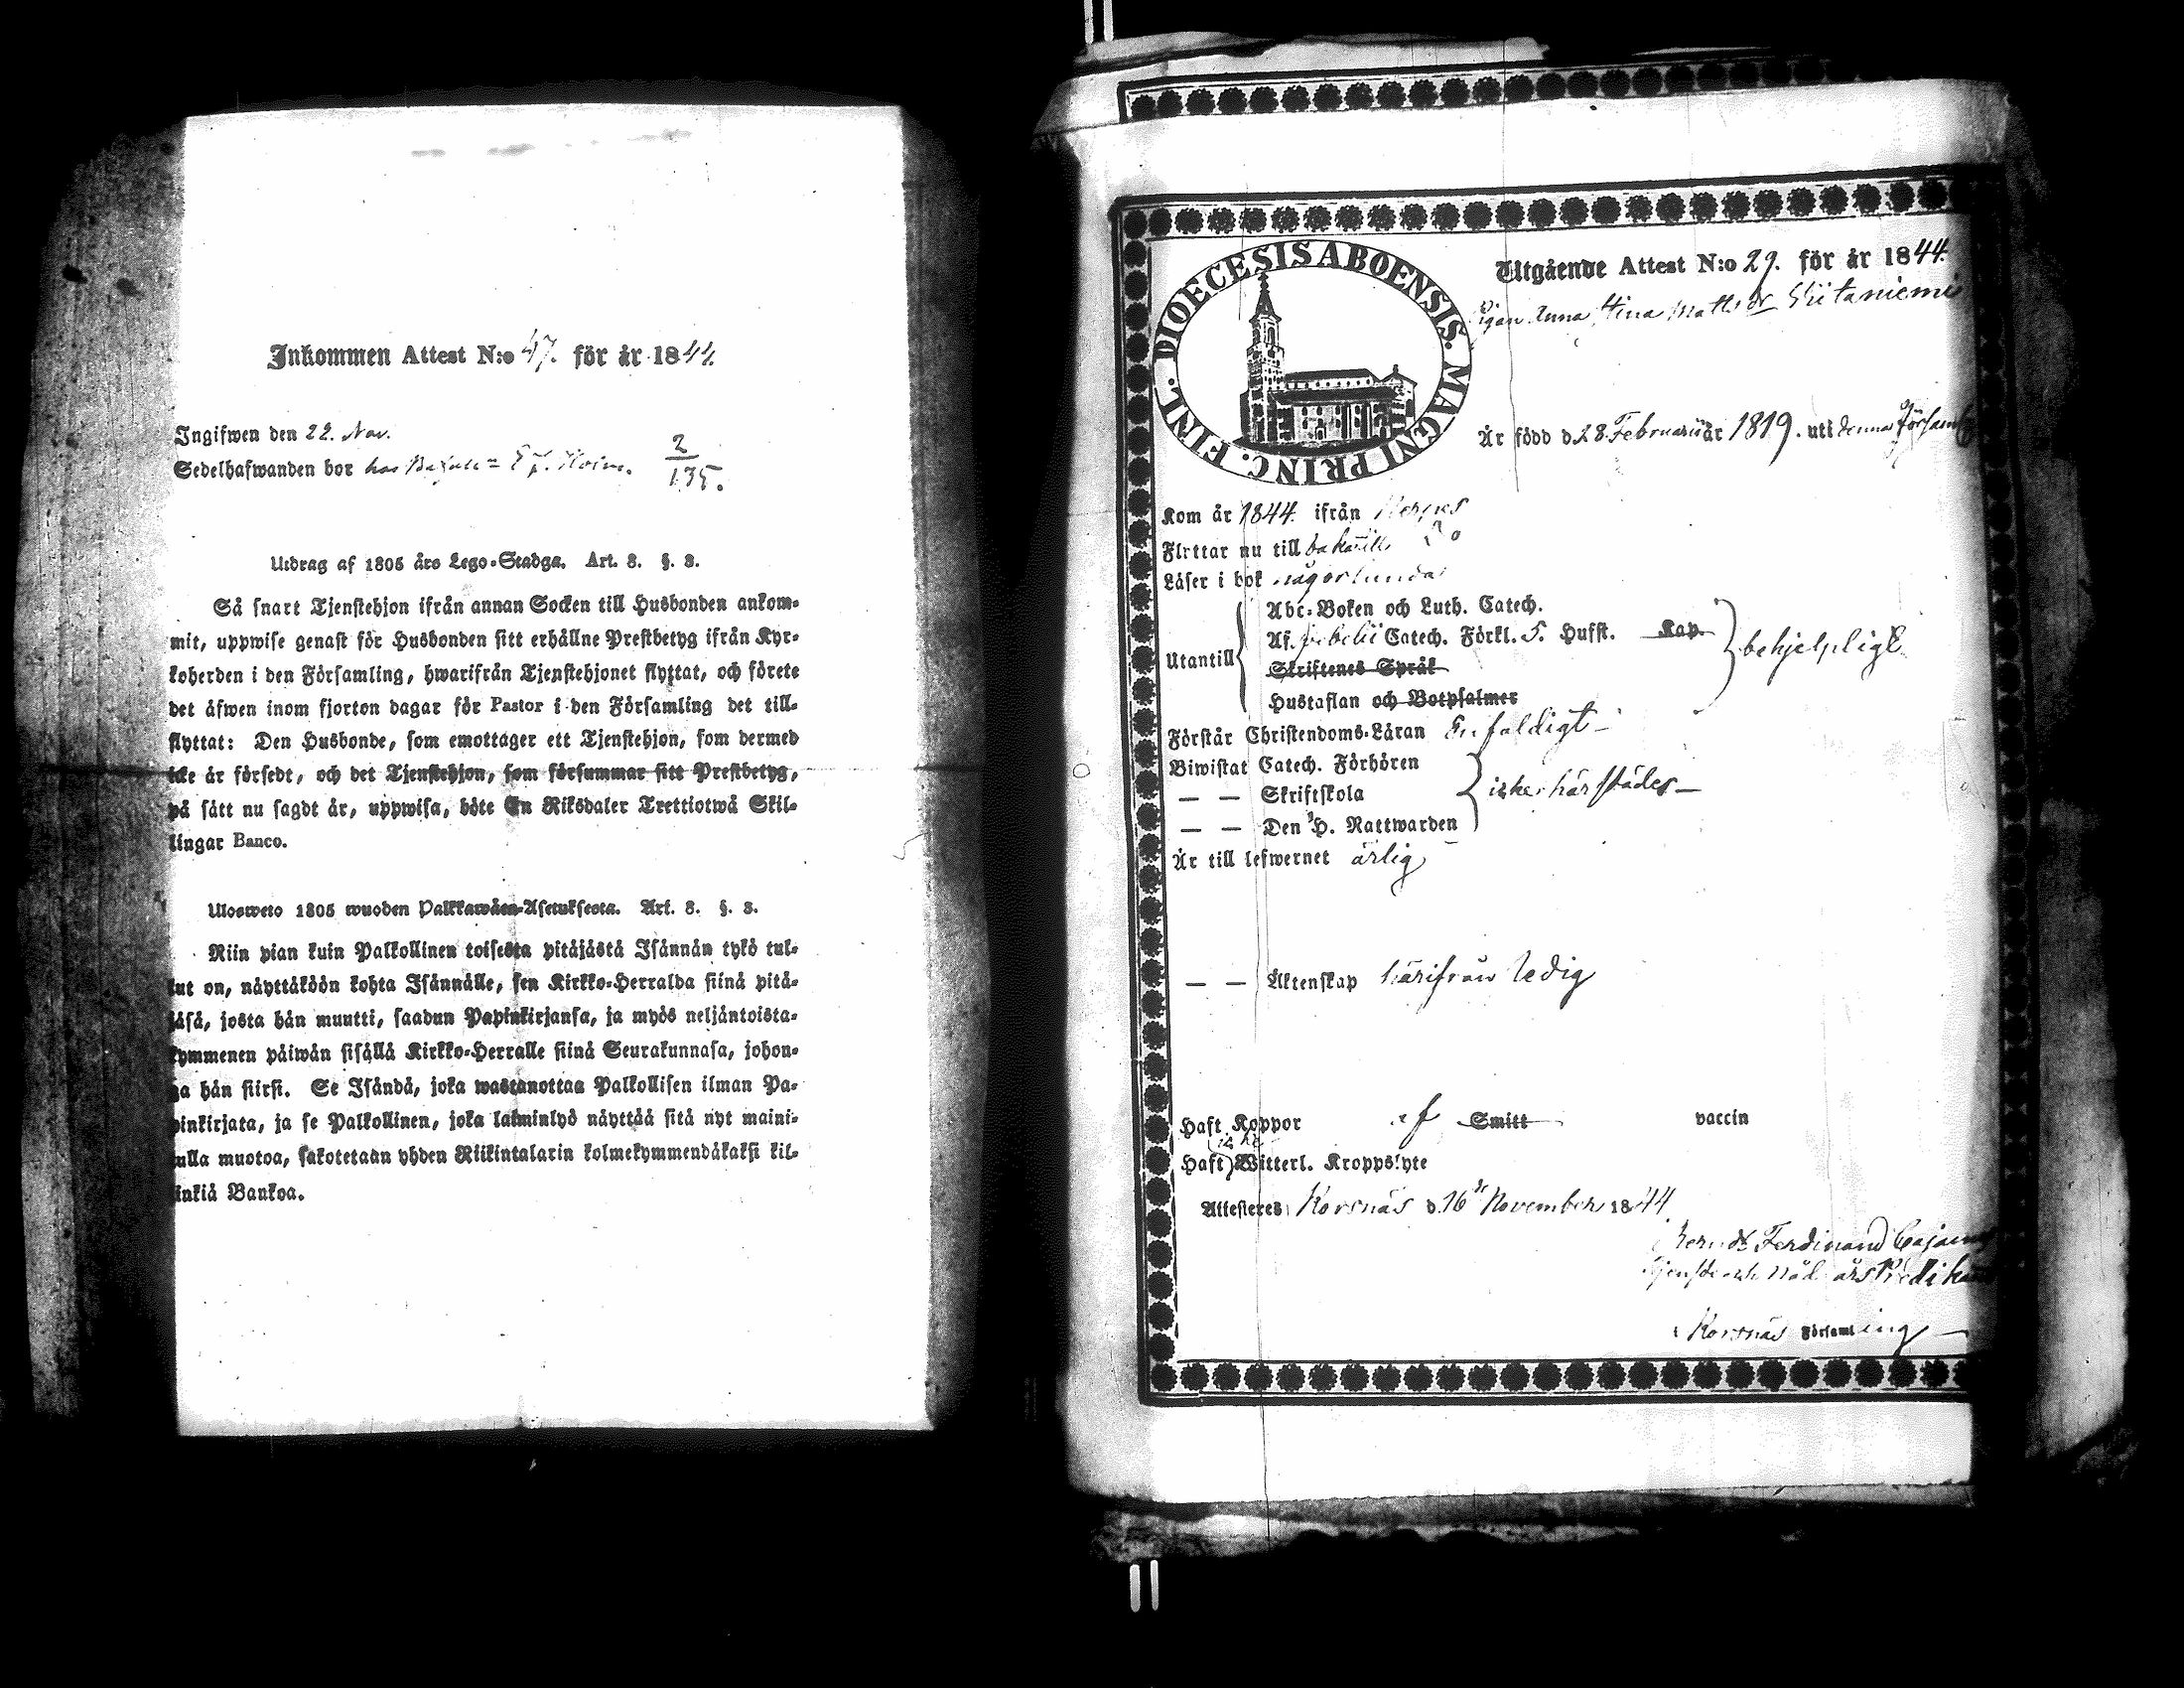 Inkommen Attest N:o 47. för år 1844.
Ingifwen den 22. Nov.
Sedelhafwanden bor hos
2
135.
Utdrag af 1805 års Lego-Stadga. Art. 8. §. 3.
Så snart Tjenstehjon ifrån annan Socken till Husbonden ankom-
mit, uppwise genast för Husbonden sitt erhållne Prestbetyg ifrån Kyr-
koherden i den Församling, hwarifrån Tjenstehjonet flyttat, och förete
det äfwen inom fjorton dagar för Pastor i den Församling det till-
flyttat: Den Husbonde, som emottager ett Tjenstehjon, som dermed
icke är försedt, och det Tjenstehjon, som försummar sitt Prestbetyg,
på sätt nu sagdt är, uppwisa, böte En Riksdaler Trettiotwå Skil-
lingar Banco.
Ulosweto 1805 wuoden Palkkawäen-Asetuksesta. Art. 8. §. 3.
Niin pian kuin Palkollinen toisesta pitäjästä Isännän tykö tul-
lut on, näyttäköön kohta Isännälle, sen Kirkko-Herralda siinä pitä-
jäsä, josta hän muutti, saadun Papinkirjansa, ja myös neljäntoista-
kymmenen päiwän sisällä Kirkko-Herralle siinä Seurakunnasa, johon-
ga hän siirsi. Se Isändä, joka wastanottaa Palkollisen ilman Pa-
pinkirjata, ja se Palkollinen, joka laiminlyö näyttää sitä nyt maini-
tulla muotoa, sakotetaan yhden Riikintalarin kolmekymmendäkaksi kil-
linkiä Bankoa.
DIOECESIS ABOENSIS. MAGNI PRINC. FINL.
Utgående Attest N:o 29. för år 1844.
Pigan Anna Stina Matts dr
Är född d. 28 Februarii år 1819. uti denna Församl
Kom år 1844. ifrån Nerpes
Flyttar nu till
Läser i bok någorlunda
Utantill
Abc-Boken och Luth. Catech.
Af Catech. Förkl. 5. Hufst. Kap.
Skriftenes Språk
Hustaflan och Botpsalmer
behjelpligt
Förstår Christendoms-Läran Enfaldigt
Biwistat Catech. Förhören
— — Skriftskola
— — Den H. Nattwarden
icke härstädes
Är till lefwernet ärlig
— — Äktenskap härifrån ledig
Haft Koppor af Smitt vaccin
icke
Haft Witterl. Kroppslyte
Attesteras Korsnäs d. 16 November 1844
Berndt Ferdinand
Korsnäs Församling